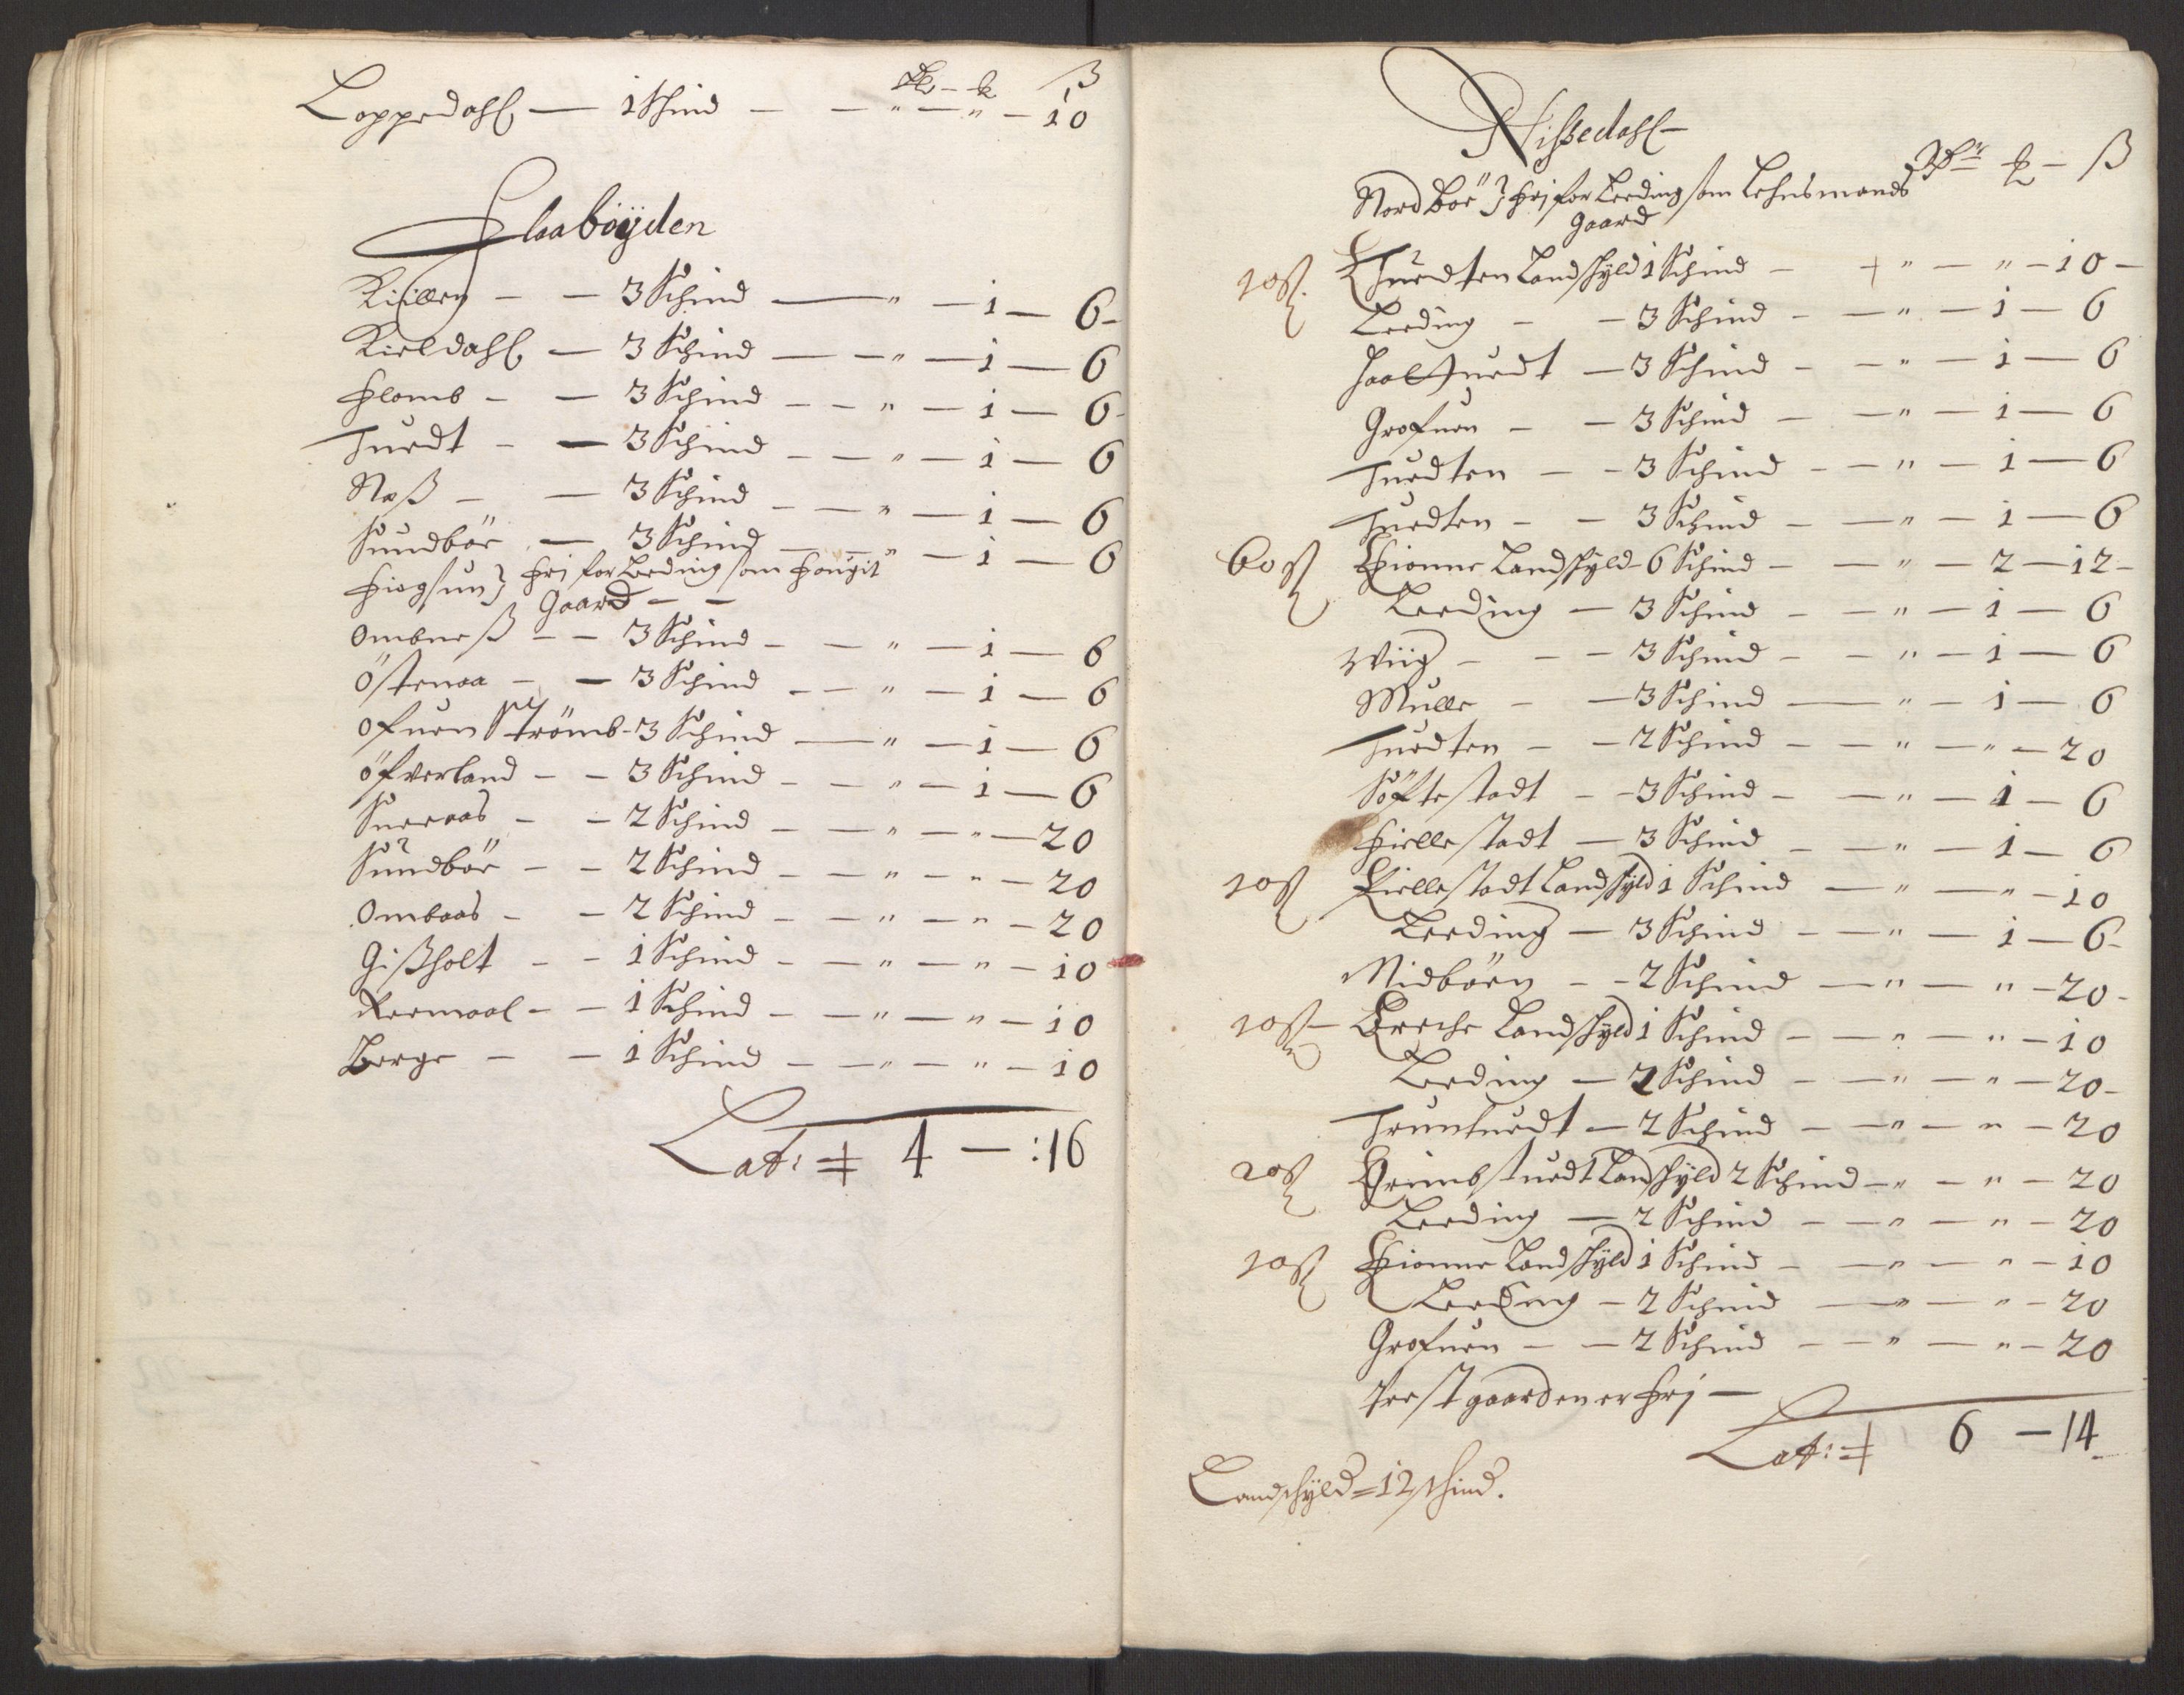 ß
Loppedahl — 1 Skind — — " — " — 10
Flaabøyden
Kiilleg — — 3 Schind — " — 1 — 6 –
Kieldahl — 3 Schind — — " — 1 — 6
Flomb – — 3 Schind – – " — 1 — 6 –
Tuedt – — 3 Schind – — " — 1 — 6
Næß – — 3 Schind – — " — 1 — 6
Sundbör — 3 Schind – — " — 1 — 6
Fiogsun } fri for Leeding som fougit
Gaard — –
Ombneß – – 3 Schind – — " — 1 — 6
Östenaa – — 3 Schind – — " — 1 — 6
Ofuen Strömb – 3 Schind — " — 1 — 6
Öfverland – – 3 Schind – — " — 1 — 6
Sneeaas – – 2 Schind – — " — " — 20
Sundbör – – 2 Schind – — " – " — 20
Ombaas – – 2 Schind – — " — " – 20
Gißholt – – 1 Schind – — " — " – 10
Reemaal – – 1 Schind – — " — " – 10
Berge – – 1 Schind – — " — " – 10
Lat: 4 — : 16
Nissedahl –
ß
Nordböe } fri for Leeding som Lehnsmands
Gaard
10 ß. Tuedten Landskyld 1 Schind – + " — " – 10 –
Leeding – – 3 Schind – — " – 1 — 6
Haaltuedt — 3 Schind – — " — 1 — 6
Grofuen – – 3 Schind – — " — 1 — 6
Tuedten – – 3 Schind – — " — 1 — 6
Tuedten – – 3 Schind – — " — 1 — 6
60 ß Fionne Landskyld – 6 Schind – — " — 2 — 12 –
Leeding — 3 Schind – — " — 1 — 6
Wiig – – – 3 Schind – – " — 1 — 6
Mulle – — 3 Schind — " — 1 — 6
Tuedten – – 2 Schind – – " — " — 20
Söftestadt – – 3 Schind – — " — 1 — 6
Fiellestadt — 3 Schind – — " — 1 — 6
10 ß Fiellestadt Landskyld 1 Schind — " — " – 10
Leeding — 3 Schind – — " — 1 — 6 –
Midböen – – 2 Schind — " — " – 20 –
10 ß – Breche Landskyld 1 Schind – — " — " – 10
Leeding — 2 Schind – — " — " — 20 –
Truntuedt — 2 Schind – — " — " – 20
20 ß Grimbstuedt Landskyld 2 Schind – " — " – 20
Leeding — 2 Schind – — " — " – 20
10 ß Fionne Landskyld 1 Schind – — " — " – 10
Leeding — 2 Schind — " — " – 20
Grofuen – — 2 Schind – — " — " – 20
Prestgaarden er frj —
Lat: 6 — 14
Landschyld = 12 schind.